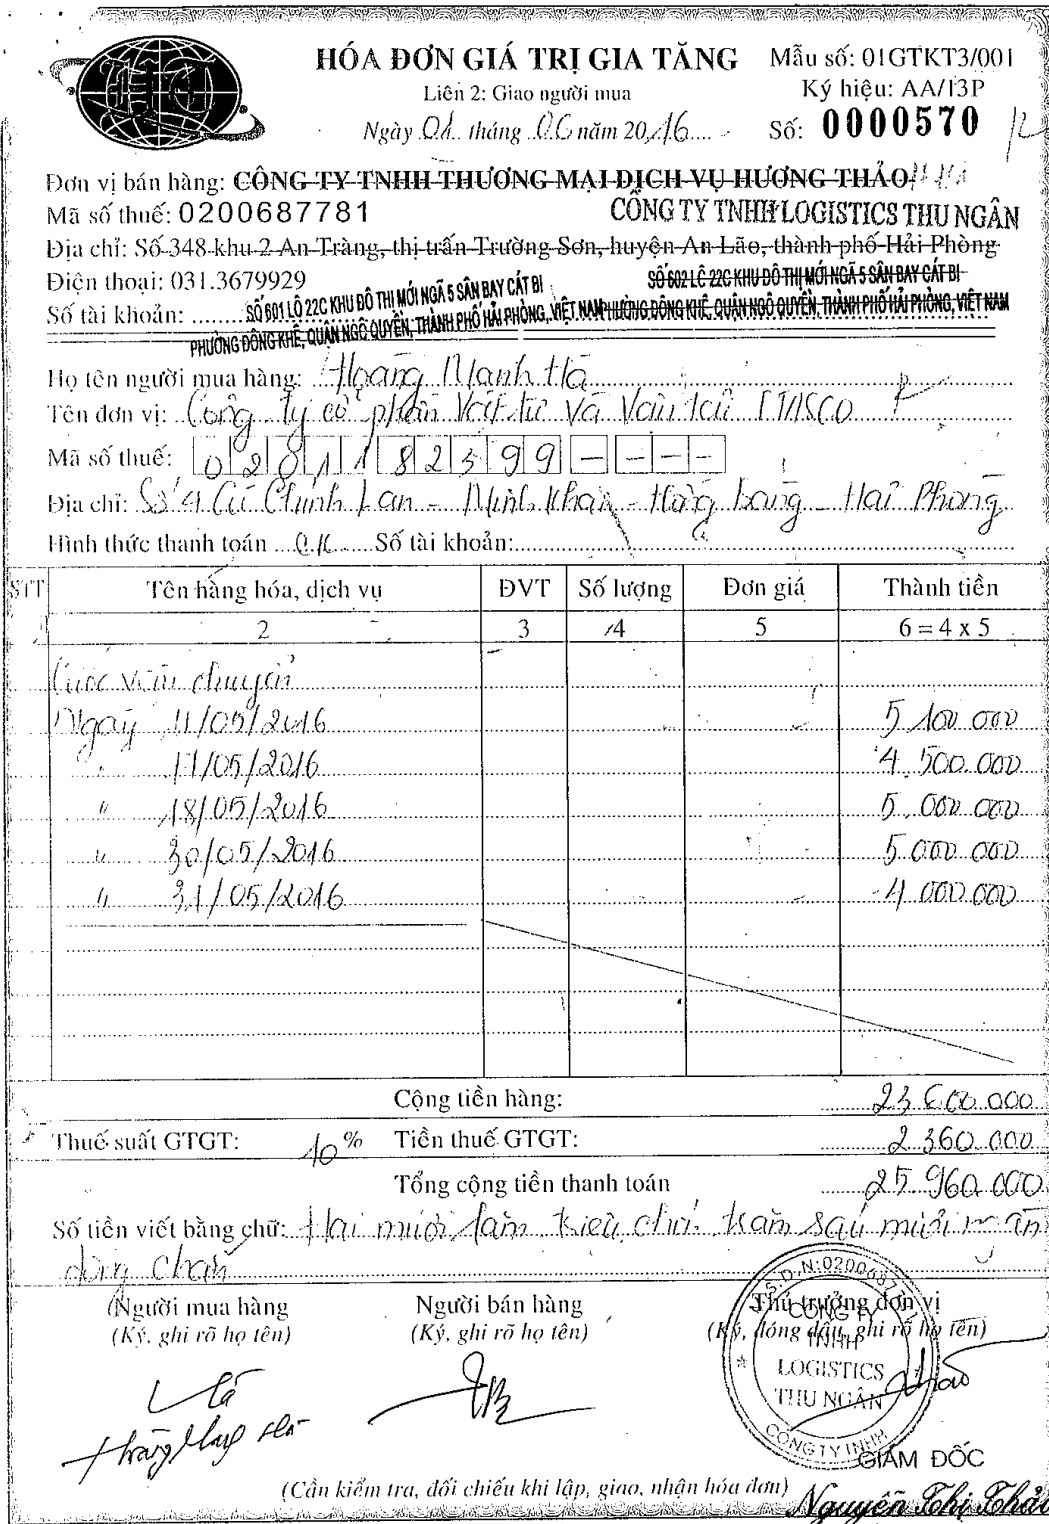 HÓA ĐƠN GIÁ TRỊ GIA TĂNG
Mẫu số: 01GTKT3/001
Liên 2: Giao người mua
Ký hiệu: AA/13P
Ngày 01 tháng 06 năm 2016
Số: 0000570
Đơn vị bán hàng: CÔNG TY TNHH THƯƠNG MẠI DỊCH VỤ HƯƠNG THẢO
Mã số thuế: 0200687781
CÔNG TY TNHH LOGISTICS THU NGÂN
Địa chỉ: Số 348 khu 2 An Tràng, thị trấn Trường Sơn, huyện An Lão, thành phố Hải Phòng
Điện thoại: 031.3679929
SỐ 602 LÔ 22C KHU ĐÔ THỊ MỚI NGÃ 5 SÂN BAY CÁT BI
PHƯỜNG ĐÔNG KHÊ, QUẬN NGÔ QUYỀN, THÀNH PHỐ HẢI PHÒNG, VIỆT NAM
Số tài khoản:
SỐ 601 LÔ 22C KHU ĐÔ THỊ MỚI NGÃ 5 SÂN BAY CÁT BI
PHƯỜNG ĐÔNG KHÊ, QUẬN NGÔ QUYỀN, THÀNH PHỐ HẢI PHÒNG, VIỆT NAM
Họ tên người mua hàng: Hoàng Mạnh Hà
Tên đơn vị: Công ty cổ phần Vật tư và Vận tải ITASCO
Mã số thuế: 0201182399 - - - -
Địa chỉ: Số 4 Cù Chính Lan - Minh Khai - Hồng bàng - Hải Phòng
Hình thức thanh toán C.K Số tài khoản:
STT Tên hàng hóa, dịch vụ ĐVT Số lượng Đơn giá Thành tiền
2 3 4 5 6 = 4 x 5
Cước vận chuyển
Ngày 11/05/2016 5 100 000
" 17/05/2016 4.500.000
" 18/05/2016 5.000.000
" 30/05/2016 5.000.000
" 31/05/2016 4.000.000
Cộng tiền hàng: 23.600.000
Thuế suất GTGT: 10% Tiền thuế GTGT: 2.360.000
Tổng cộng tiền thanh toán 25.960.000
Số tiền viết bằng chữ: Hai mươi lăm triệu chín trăm sáu mươi ngàn
đồng chẵn
Người mua hàng Người bán hàng Thủ trưởng đơn vị
(Ký, ghi rõ họ tên) (Ký, ghi rõ họ tên) (Ký, đóng dấu, ghi rõ họ tên)
CÔNG TY
TNHH
LOGISTICS
THU NGÂN
CÔNG TY TNHH
GIÁM ĐỐC
(Cần kiểm tra, đối chiếu khi lập, giao, nhận hóa đơn)
Nguyễn Thị Thảo